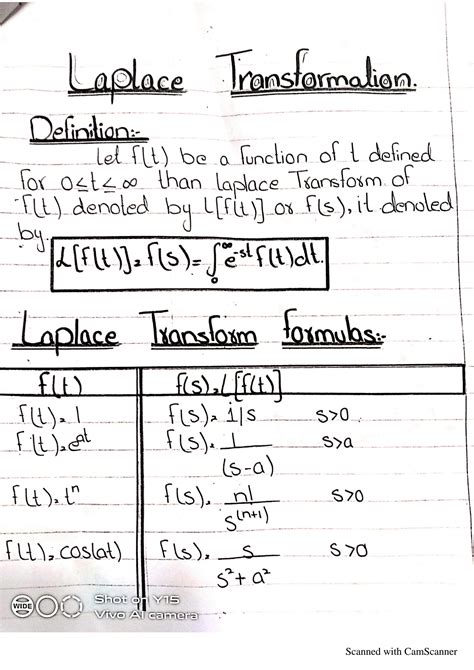 Laplace Transformation.
Definition:-
let f(t) be a function of t defined
for 0≤t≤∞ than laplace Transform of
f(t) denoted by L[f(t)] or f(s), it denoted
by
L[f(t)] = f(s) = ∫₀^∞ e^-st f(t)dt.
Laplace Transform formulas:-
f(t) f(s) = L[f(t)]
f(t) = 1 f(s) = 1/s s>0
f(t) = e^at f(s) = 1/(s-a) s>a
f(t) = t^n f(s) = n!/s^(n+1) s>0
f(t) = cos(at) f(s) = s/s²+a² s>0
WIDE
Shot on Y15
Vivo AI camera
Scanned with CamScanner